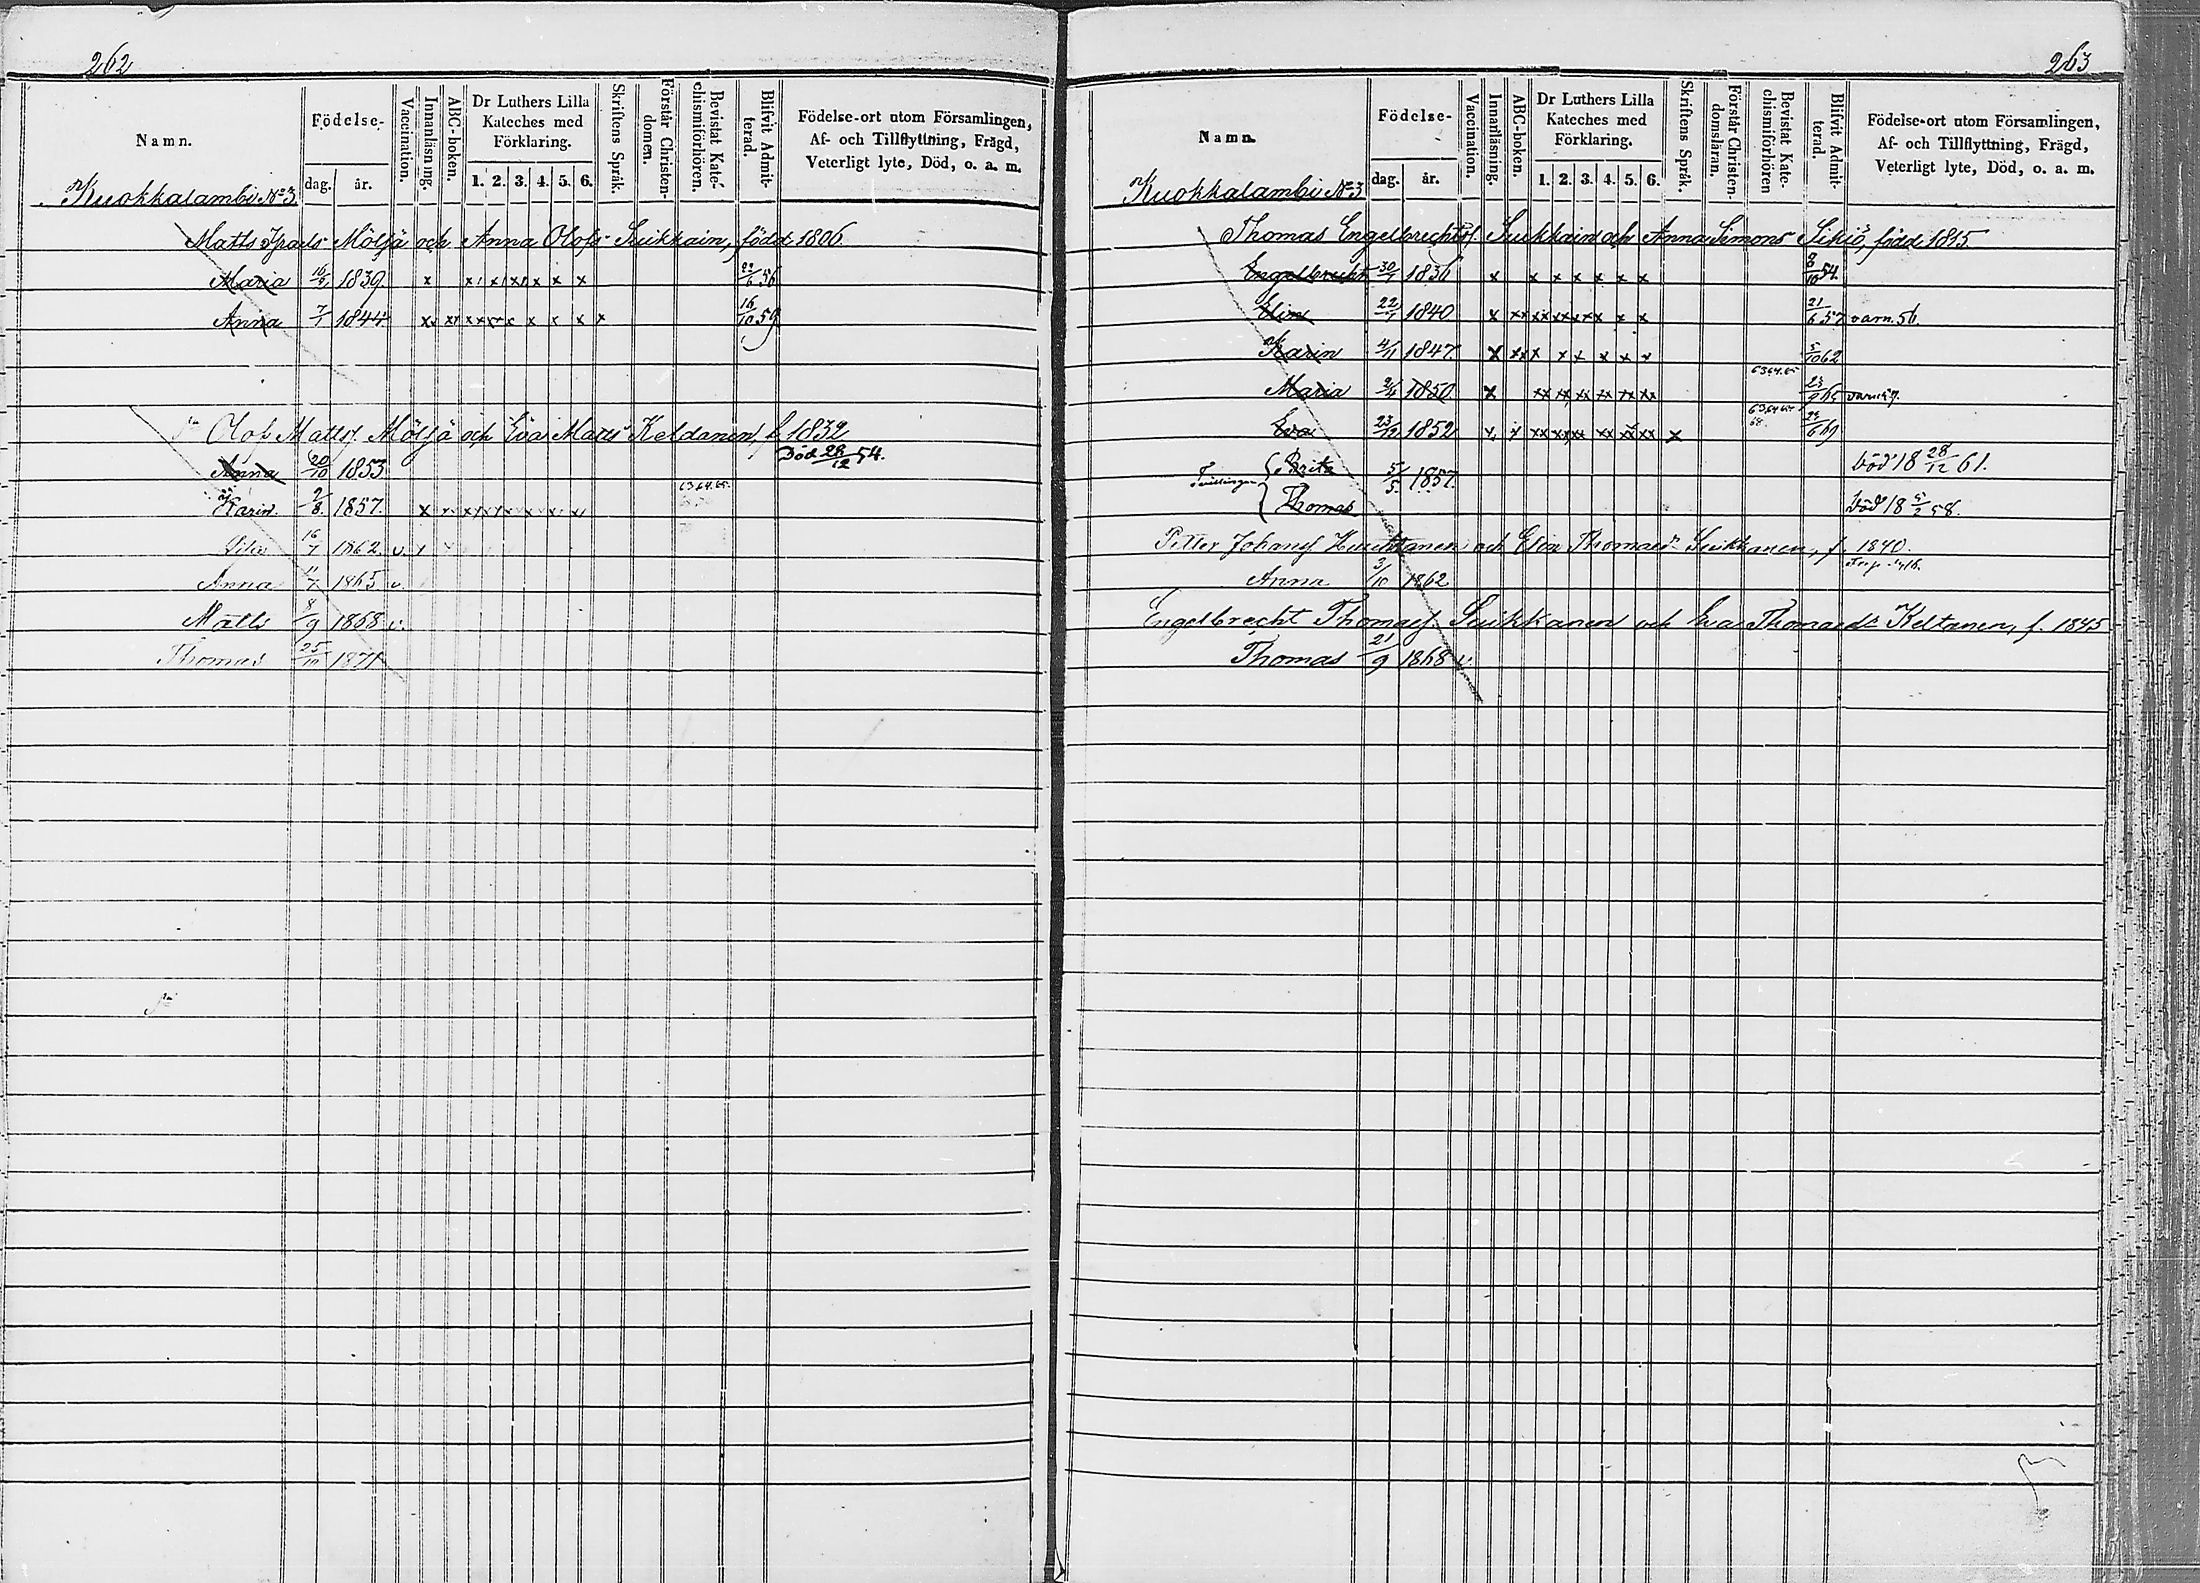 262
Namn. Födelse- dag. år. Vaccination. Innanläsning. ABC-boken. Dr Luthers Lilla Kateches med Förklaring. 1. 2. 3. 4. 5. 6. Skriftens Språk. Förstår Christendomen. Bevistat Katechismiförhören. Blifvit Admitterad. Födelse-ort utom Församlingen, Af- och Tillflyttning, Frägd, Veterligt lyte, Död, o. a. m.
Kuokkalambi No 3.
Matts Mölsä och Anna Olofs Suikkain, född 1806.
Maria 1839 x x x x x x x 22/6 56
Anna 7/1 1844 16/10 59
Olof Mattss. Mölsä och Eva Matts Keldanen, f. 1832
Anna 20/10 1853 Död 28/12 54.
Karin 2/8 1857. 63.64.65.
16/7 1862 v.
Anna 11/7 1865 v.
Matts 8/9 1868 v.
Thomas 25/10 1871
263
Namn. Födelse- dag. år. Vaccination. Innanläsning. ABC-boken. Dr Luthers Lilla Kateches med Förklaring. 1. 2. 3. 4. 5. 6. Skriftens Språk. Förstår Christendomsläran. Bevistat Katechismiförhören Blifvit Admitterad. Födelse-ort utom Församlingen, Af- och Tillflyttning, Frägd, Veterligt lyte, Död, o. a. m.
Kuokkalambi No 3
Thomas Engelbrechts. Suikkain och Anna Simons Sikiö, född 1815
Engelbrecht 30/7 1836 x x x x x x x 8/10 54.
Elin 22/7 1840 21/6 57 varn. 56.
Karin 4/11 1847 5/10 62
Maria 2/4 1850 63.64.65 23/9 65
Eva 23/12 1852 63.64.65. 68. 24/6 69
Tvillingar Brita 5/5 1857. Död 18 28/12 61.
Thomas Död 18 5/2 58.
Petter Johans. och Elin Thomasdr Suikkanen, f. 1840.
Anna 3/10 1862
Engelbrecht Thomass. Suikkanen och Eva Thomasdr Keltanen, f. 1845
Thomas 21/9 1868 v.